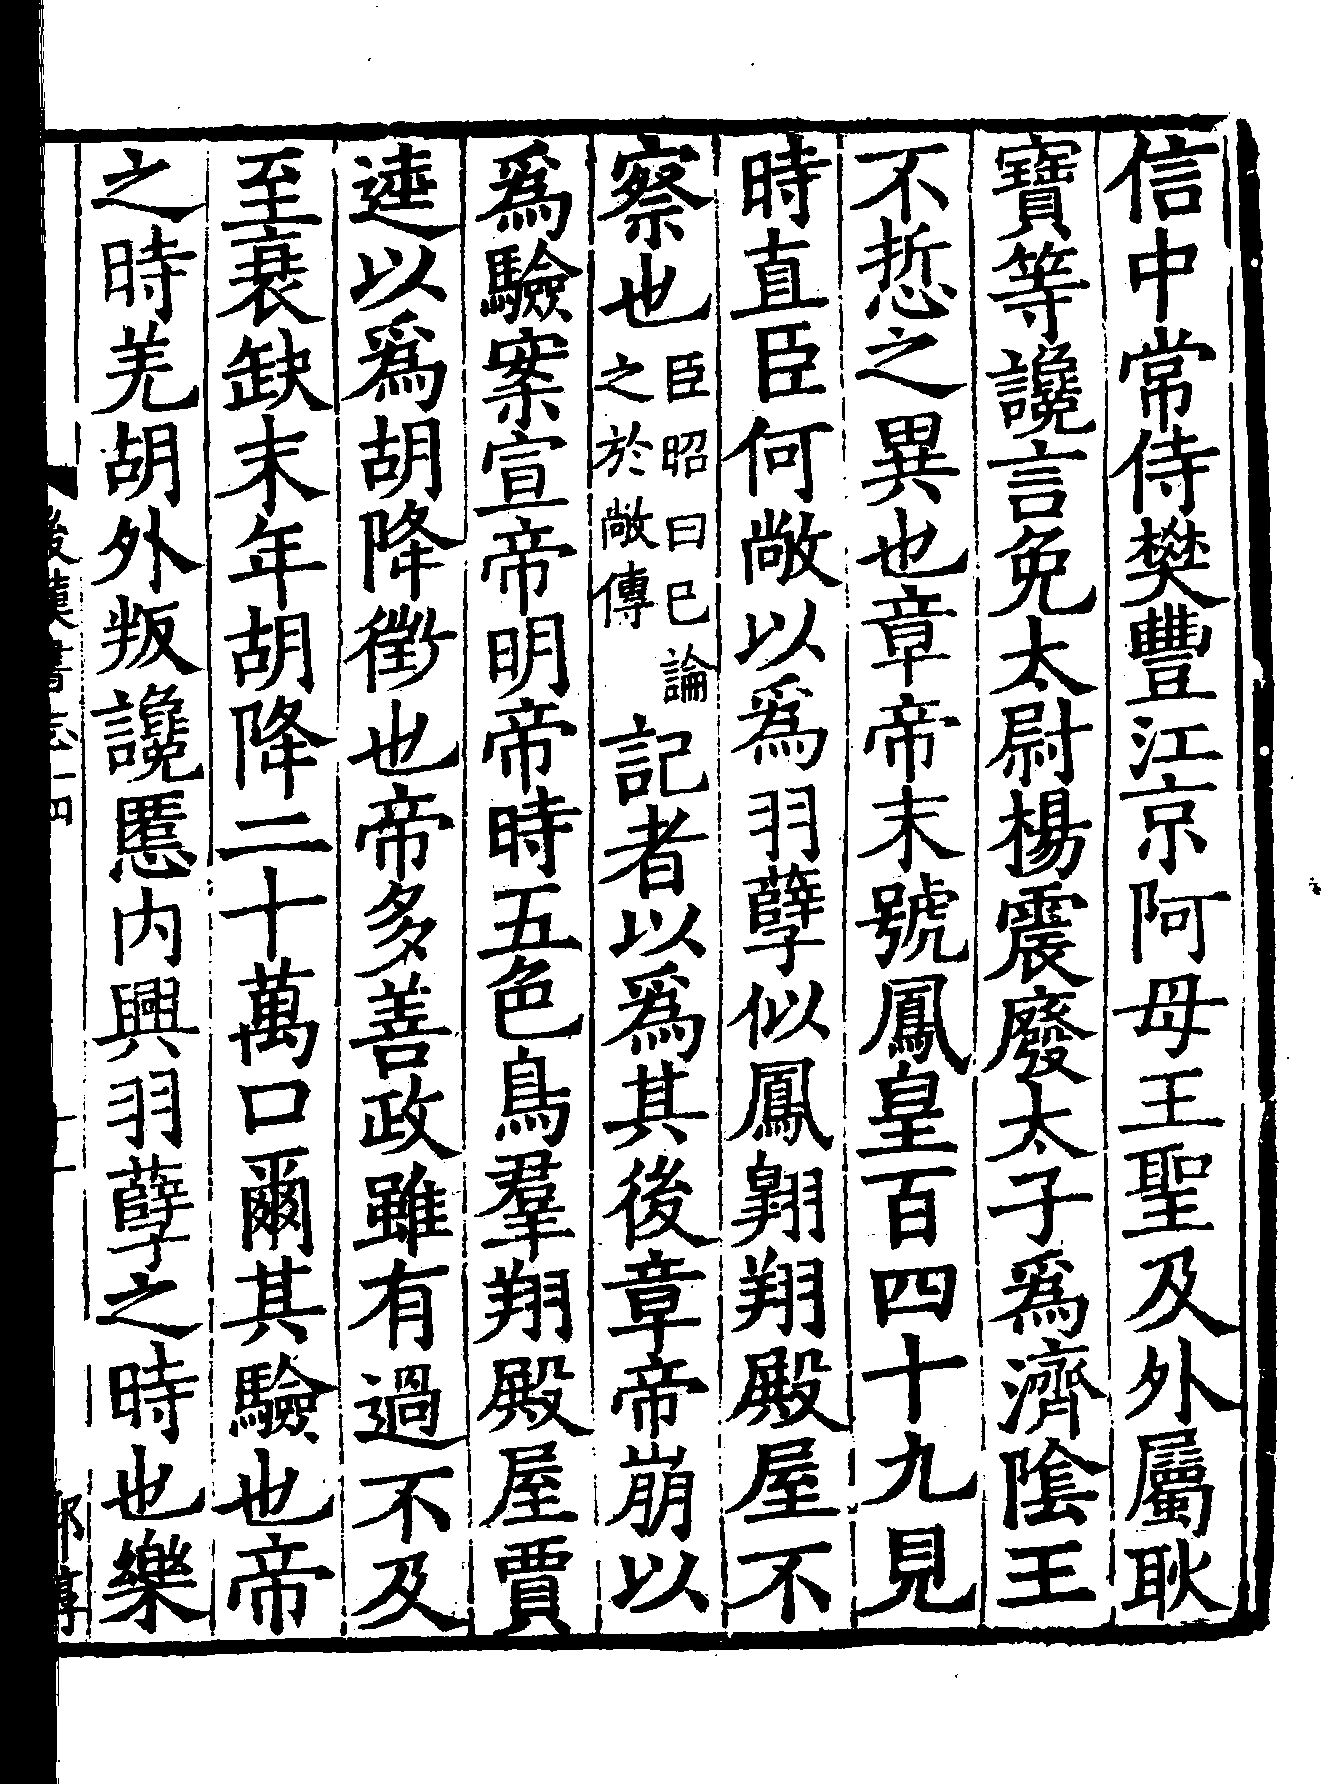 信中常侍樊豐江京阿母王聖及外屬耿
寶等讒言免太尉楊震廢太子爲濟陰王
不悊之異也章帝末號鳳皇百四十九見
時直臣何敞以爲羽孽似鳳翺翔殿屋不
察也臣昭曰已論之於敞傳記者以爲其後章帝崩以
爲驗案宣帝明帝時五色鳥羣翔殿屋賈
逵以爲胡降徵也帝多善政雖有過不及
至衰缺末年胡降二十萬口爾其驗也帝
之時羌胡外叛讒慝内興羽孽之時也樂
後漢書志十四
十一